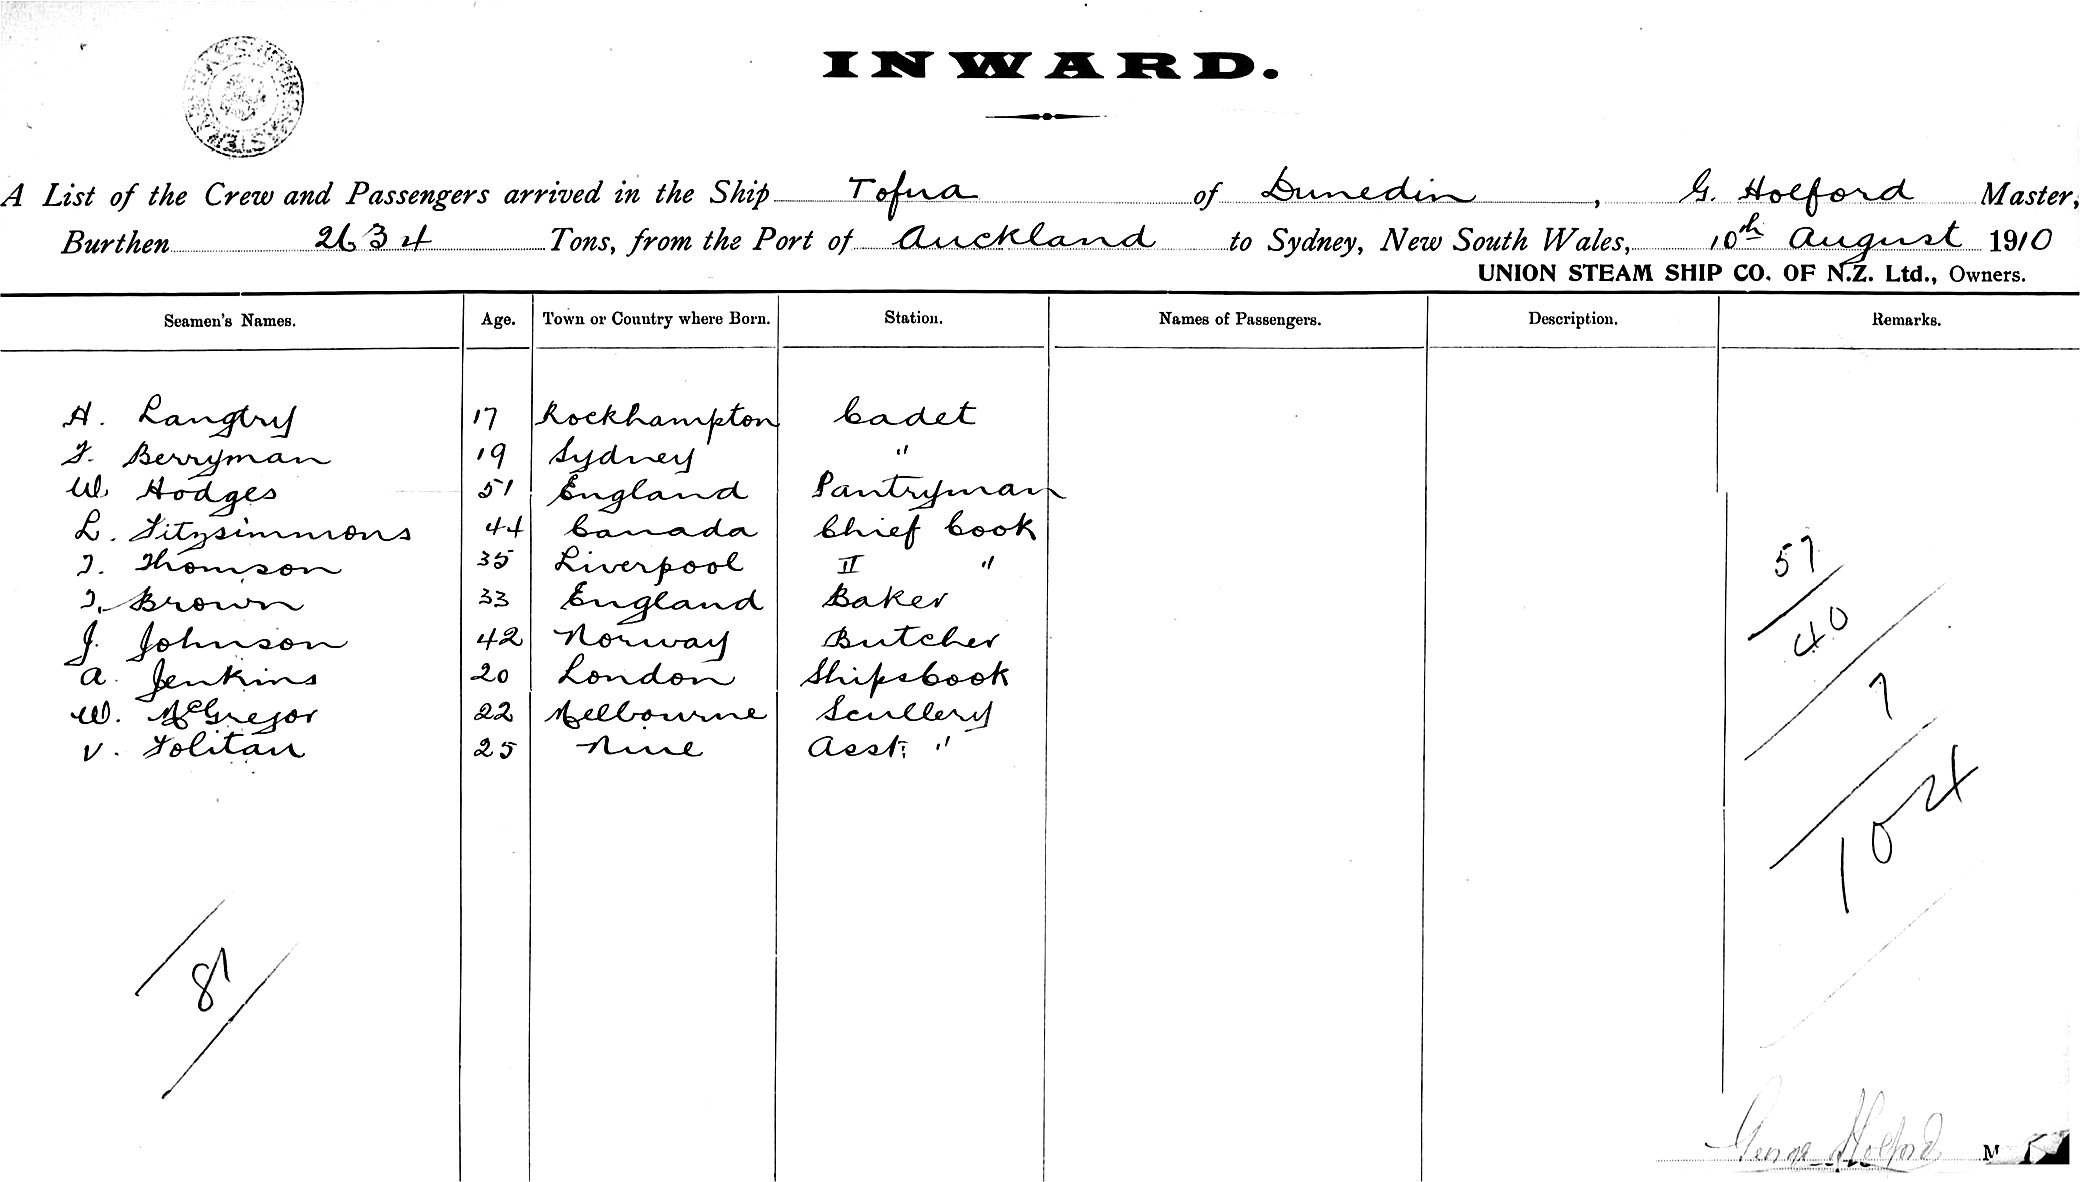 INWARD.
A List of the Crew and Passengers arrived in the Ship Tofua of Dunedin, G. Holford Master,
Burthen 2634 Tons, from the Port of Auckland to Sydney, New South Wales, 10th August 1910
UNION STEAM SHIP CO. OF N.Z. Ltd., Owners.
Seamen's Names. Age. Town or Country where Born. Station. Names of Passengers. Description. Remarks.
H. Langtry 17 Rockhampton Cadet
F. Berryman 19 Sydney "
W. Hodges 51 England Pantryman
L. Fitzsimmons 44 Canada Chief Cook
T. Thomson 35 Liverpool II "
T. Brown 33 England Baker
J. Johnson 42 Norway Butcher
A. Jenkins 20 London Ships Cook
W. McGregor 22 Melbourne Scullery
V. Folitau 25 Niue Asst. "
57
40
7
104
81
George Holford M